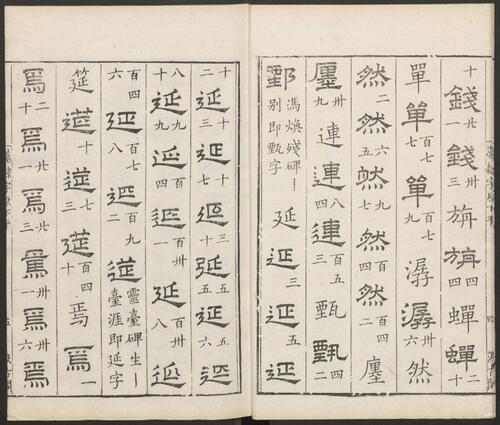 十 錢 廿 錢 卅三 旃 旃 四四 蟬 蟬 十二
單 單 百七七 單 百七九 潺 潺 卅六 然
然 二 然 六五 然 九七 然 百四 然 百四二 廛
廛 卅九 連 連 八四 連 百五三 甄 甄 四二
鄄 馮煥殘碑｜別即甄字 延 延 三 延 五 延
十二 延 十三 延 十七 延 十三 延 五五 延
八十 延 九九 延 百四四 延 百卅一 延 百卅八 延
百四六 延 百七八 延 百九二 莚 靈臺碑生｜臺涯即延字
筵 筵 十 筵 七三 筵 百四十 焉 焉 一
焉 二十 焉 廿一 焉 廿三 焉 卅一 焉 卅六 焉